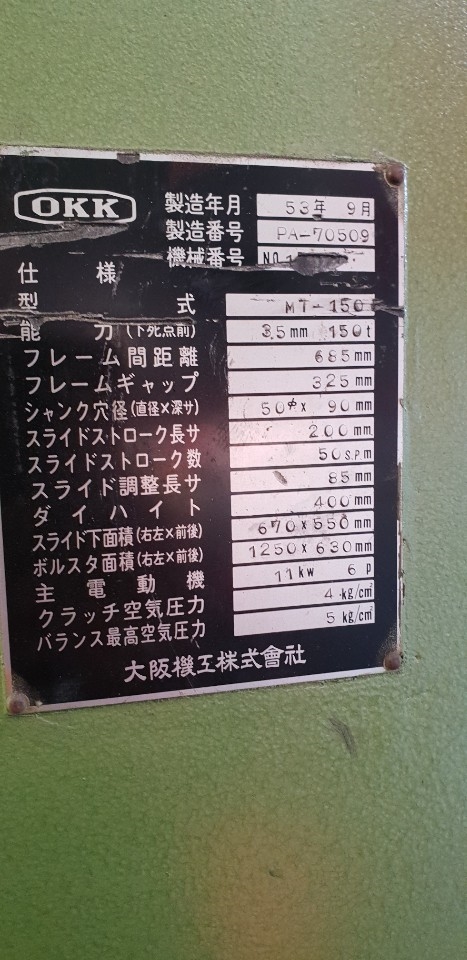 OKK
製造年月 53年 9月
製造番号 PA-70509
機械番号 NO.
仕様
型式 MT-150
能力(下死点前) 3.5mm 150t
フレーム間距離 685mm
フレームギャップ 325mm
シャンク穴径(直径×深サ) 50φx 90mm
スライドストローク長サ 200mm
スライドストローク数 50S.P.m
スライド調整長サ 85mm
ダイハイト 400mm
スライド下面積(右左×前後) 670×550mm
ボルスタ面積(右左×前後) 1250×630mm
主電動機 11kw 6p
クラッチ空気圧力 4kg/cm²
バランス最高空気圧力 5kg/cm²
大阪機工株式會社